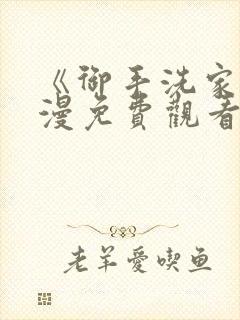 《御手洗家
漫免費觀看
老羊愛喫鱼